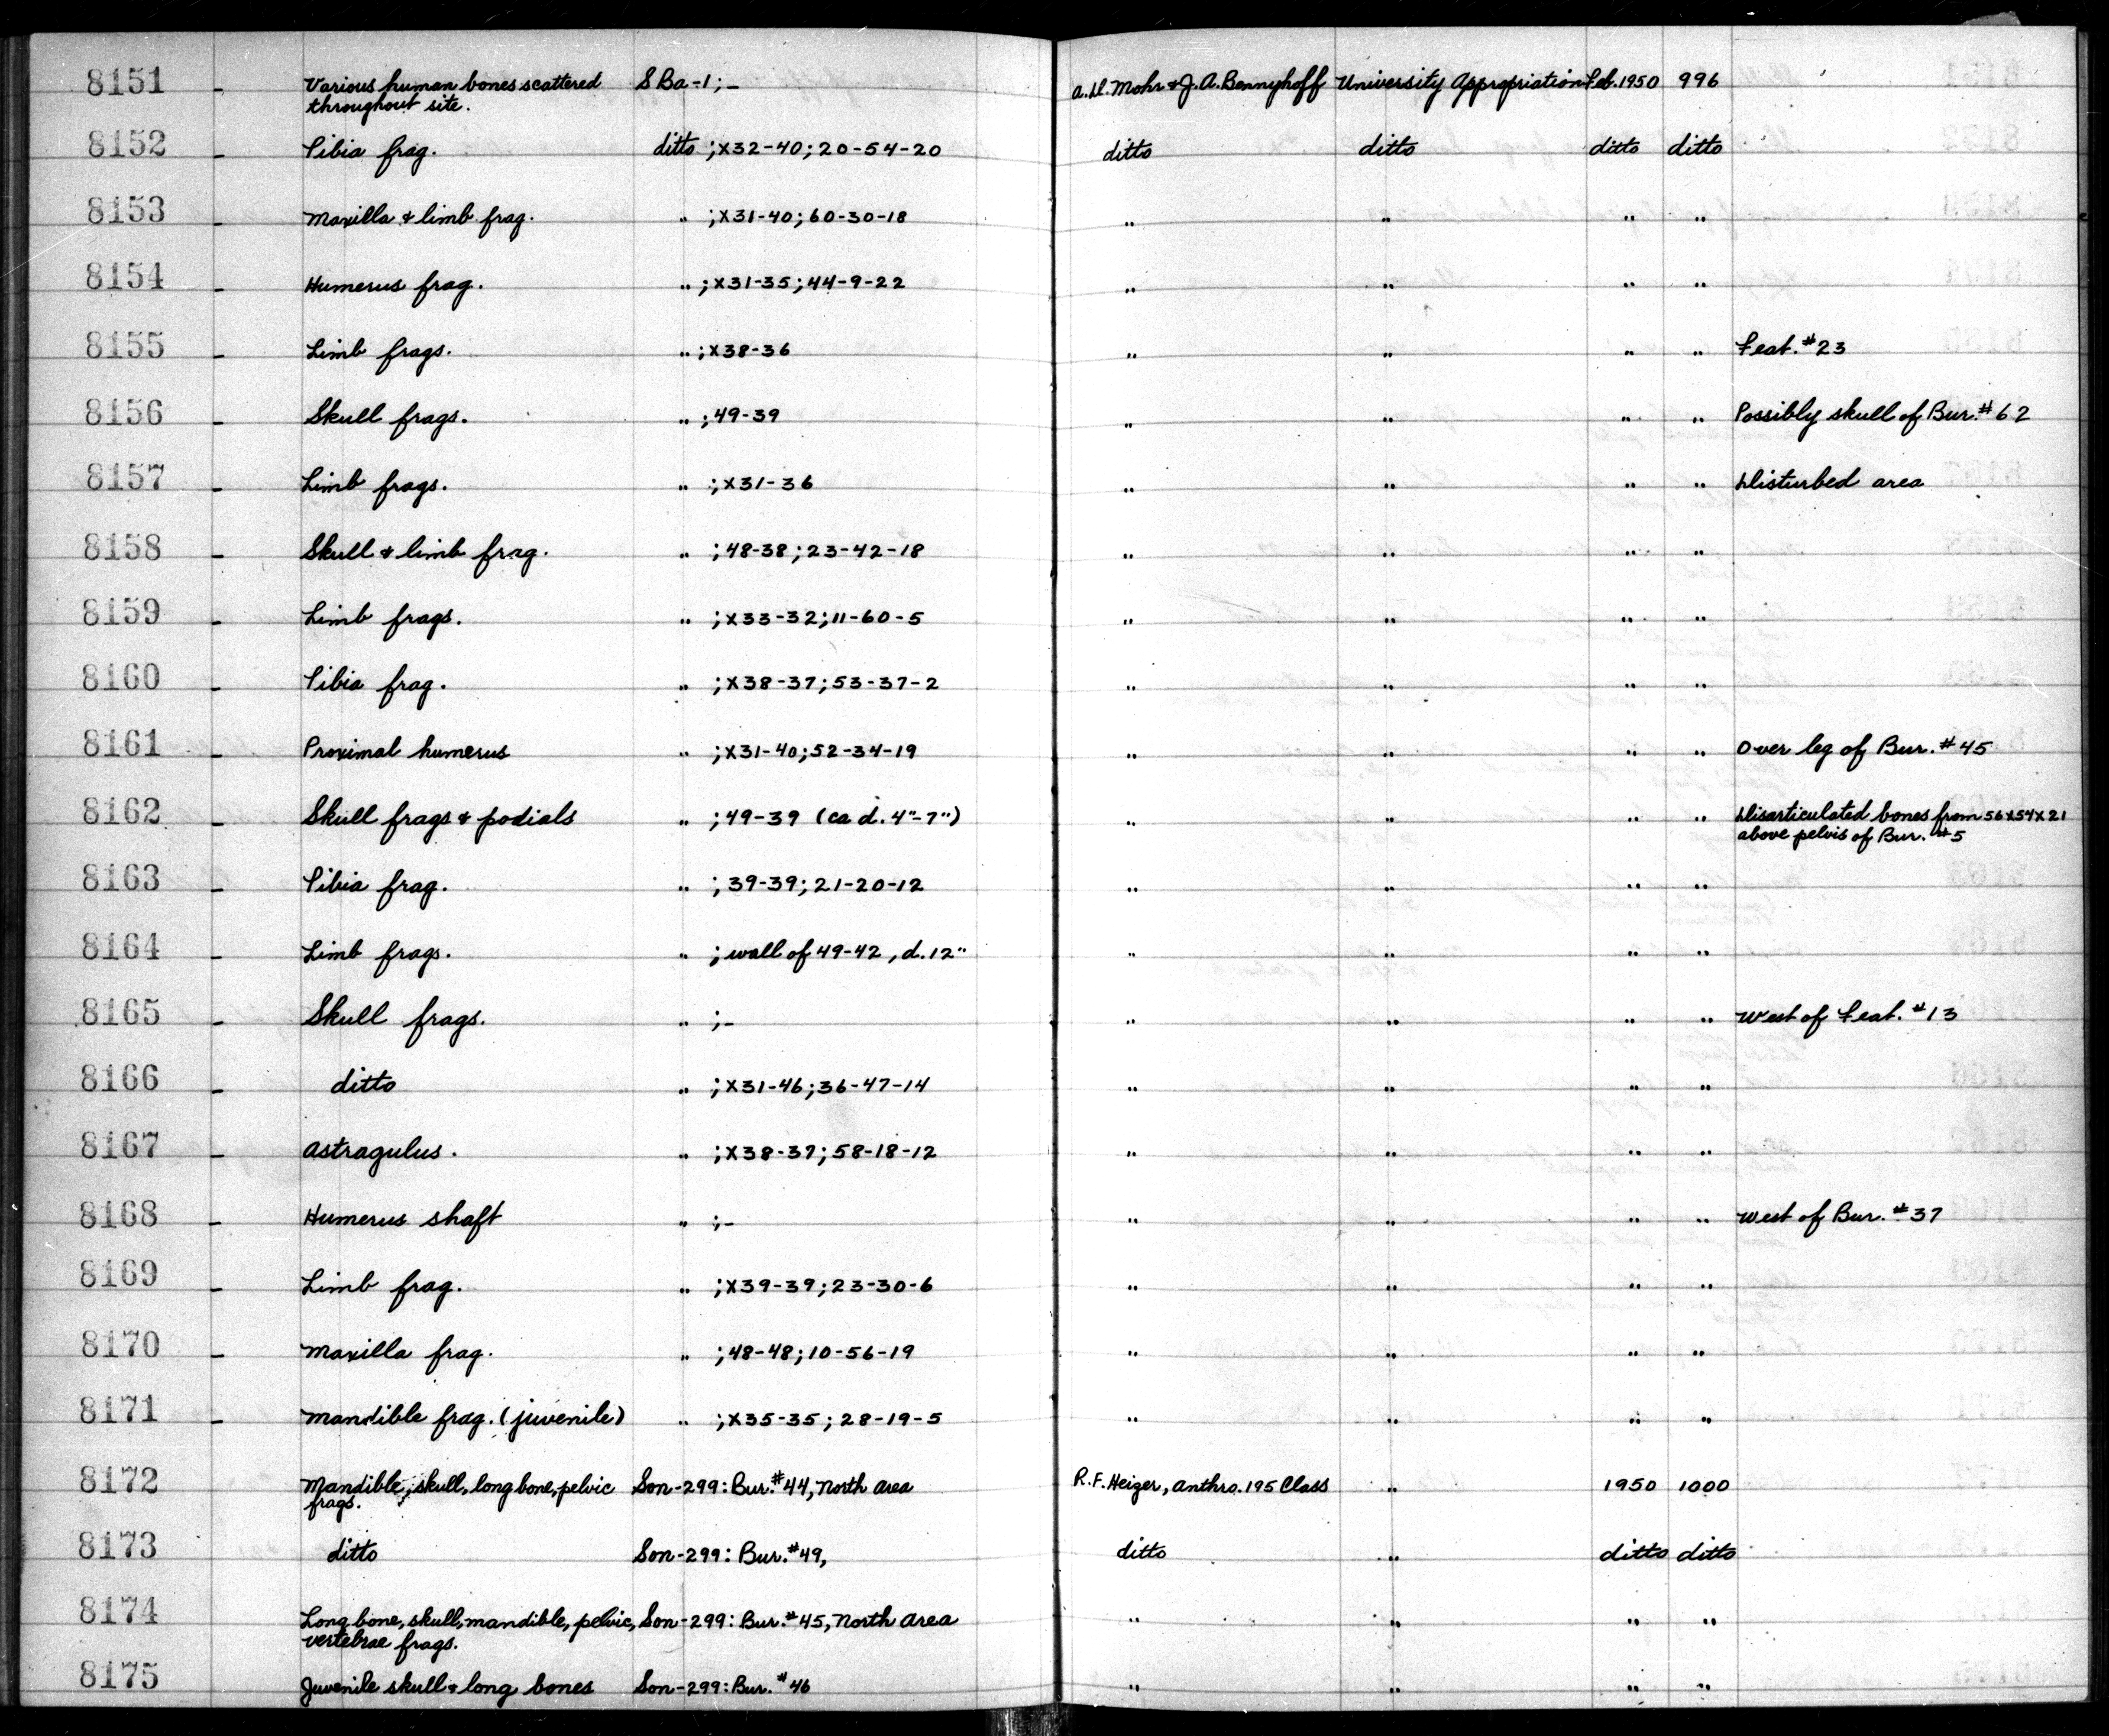 8151 - Various human bones scattered S Ba-1; - A.D. Mohr & J.A. Bennyhoff University Appropriation Feb. 1950 996
throughout site.
8152 - Tibia frag. ditto ; X32-40; 20-54-20 ditto ditto ditto ditto
8153 - Maxilla & limb frag. " ; X31-40; 60-30-18 " " " "
8154 - Humerus frag. " ; X31-35; 44-9-22 " " " "
8155 - Limb frags. " ; X38-36 " " " " Feat. #23
8156 - Skull frags. " ; 49-39 " " " " Possibly skull of Bur. #62
8157 - Limb frags. " ; X31-36 " " " " Disturbed area
8158 - Skull & limb frag. " ; 48-38; 23-42-18 " " " "
8159 - Limb frags. " ; X33-32; 11-60-5 " " " "
8160 - Tibia frag. " ; X38-37; 53-37-2 " " " "
8161 - Proximal humerus " ; X31-40; 52-34-19 " " " " Over leg of Bur. #45
8162 - Skull frags & podials " ; 49-39 (ca d. 4"-7") " " " " Disarticulated bones from 56X54X21
above pelvis of Bur. #5
8163 - Tibia frag. " ; 39-39; 21-20-12 " " " "
8164 - Limb frags. " ; wall of 49-42, d. 12" " " " "
8165 - Skull frags. " ; - " " " " West of Feat. #13
8166 - ditto " ; X31-46; 36-47-14 " " " "
8167 - Astragulus. " ; X38-37; 58-18-12 " " " "
8168 - Humerus shaft " ; - " " " " West of Bur. #37
8169 - Limb frag. " ; X39-39; 23-30-6 " " " "
8170 - Maxilla frag. " ; 48-48; 10-56-19 " " " "
8171 - Mandible frag. (juvenile) " ; X35-35; 28-19-5 " " " "
8172 Mandible, skull, long bone, pelvic Son-299: Bur. #44, North Area R.F. Heizer, Anthro. 195 Class " 1950 1000
frags.
8173 ditto Son-299: Bur. #49, ditto " ditto ditto
8174 Long bone, skull, mandible, pelvic, Son-299: Bur. #45, North Area " " " "
vertebrae frags.
8175 Juvenile skull & long bones Son-299: Bur. #46 " " " "